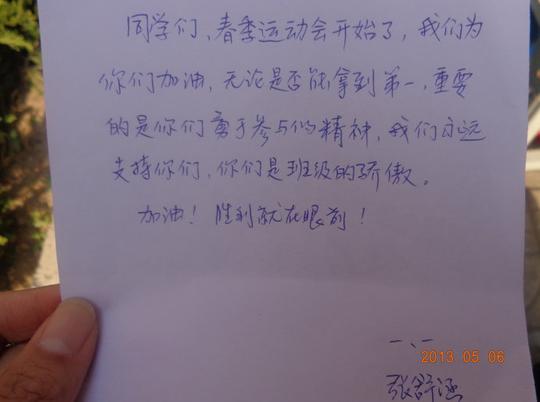 同学们、春季运动会开始了，我们为
你们加油，无论是否能拿到第一，重要
的是你们勇于参与的精神，我们永远
支持你们，你们是班级的骄傲。
加油！胜利就在眼前！
一、一
2013 05 06
张舒涵